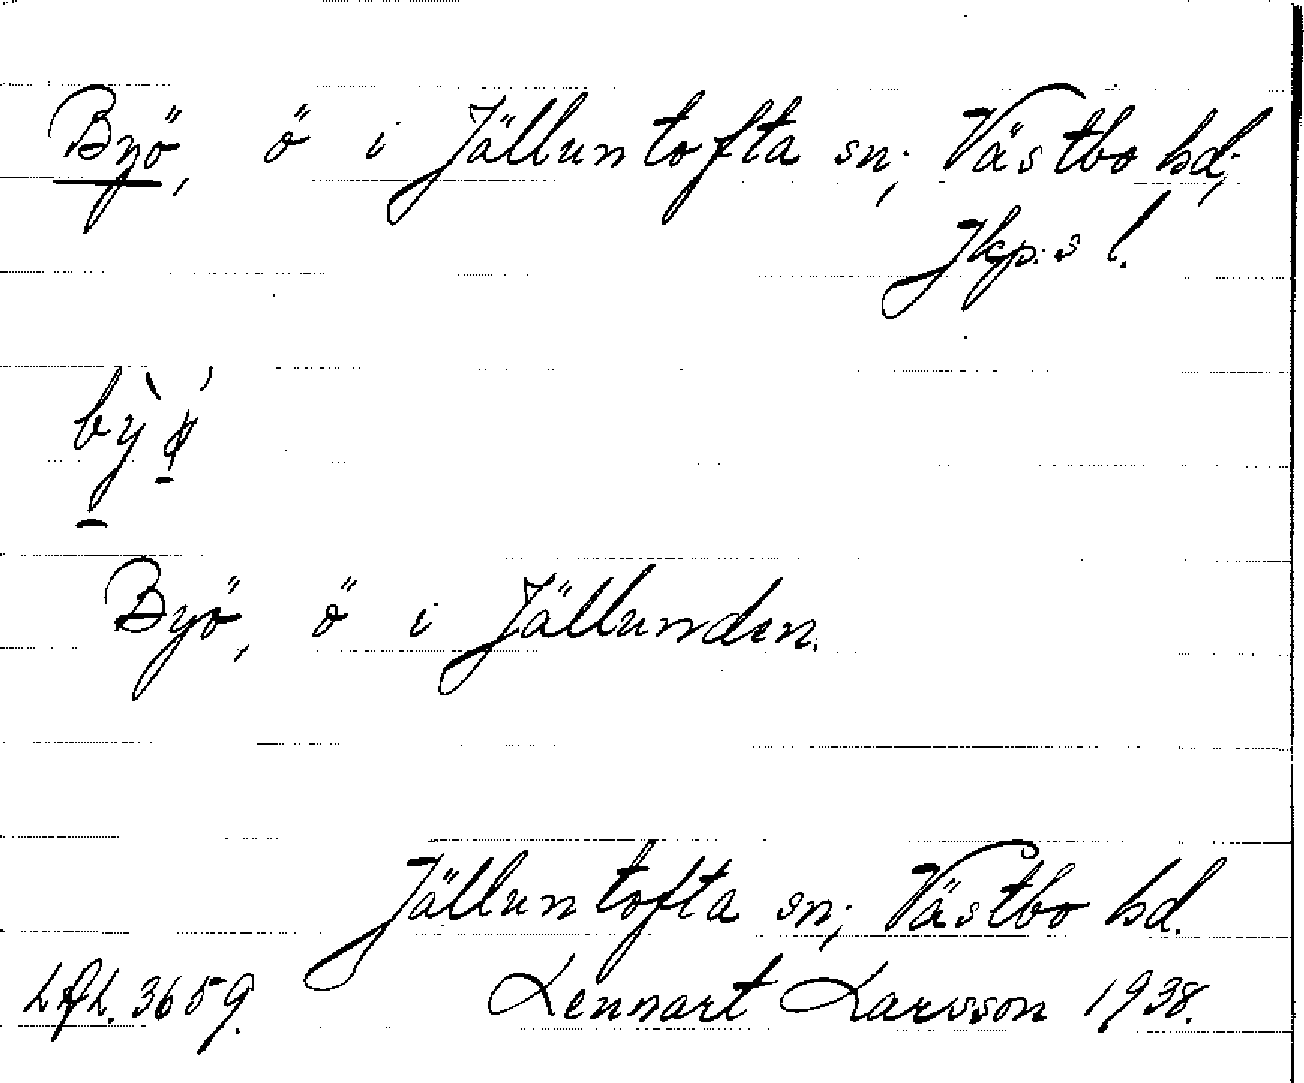 Byö, ö i Jälluntofta sn; Västbo hd;
Jkp:s l.
by`ø´
Byö, ö i Jällunden.
Jälluntofta sn; Västbo hd.
3659. Lennart Larsson 1938.